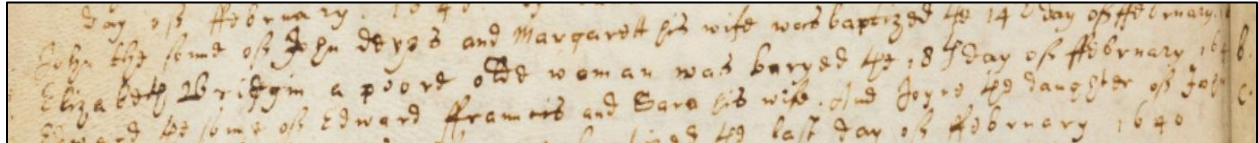 day of ffebruary 1640
John the sonne of John deyos and Margarett his wife was baptized the 14th day of ffebruary
Elizabeth Bridgin a poore olde woman was buryed the 18th day of ffebruary 164
Edward the sonne of Edward ffrancis and Sara his wife. And Joyce the daughter of John
the last day of ffebruary 1640